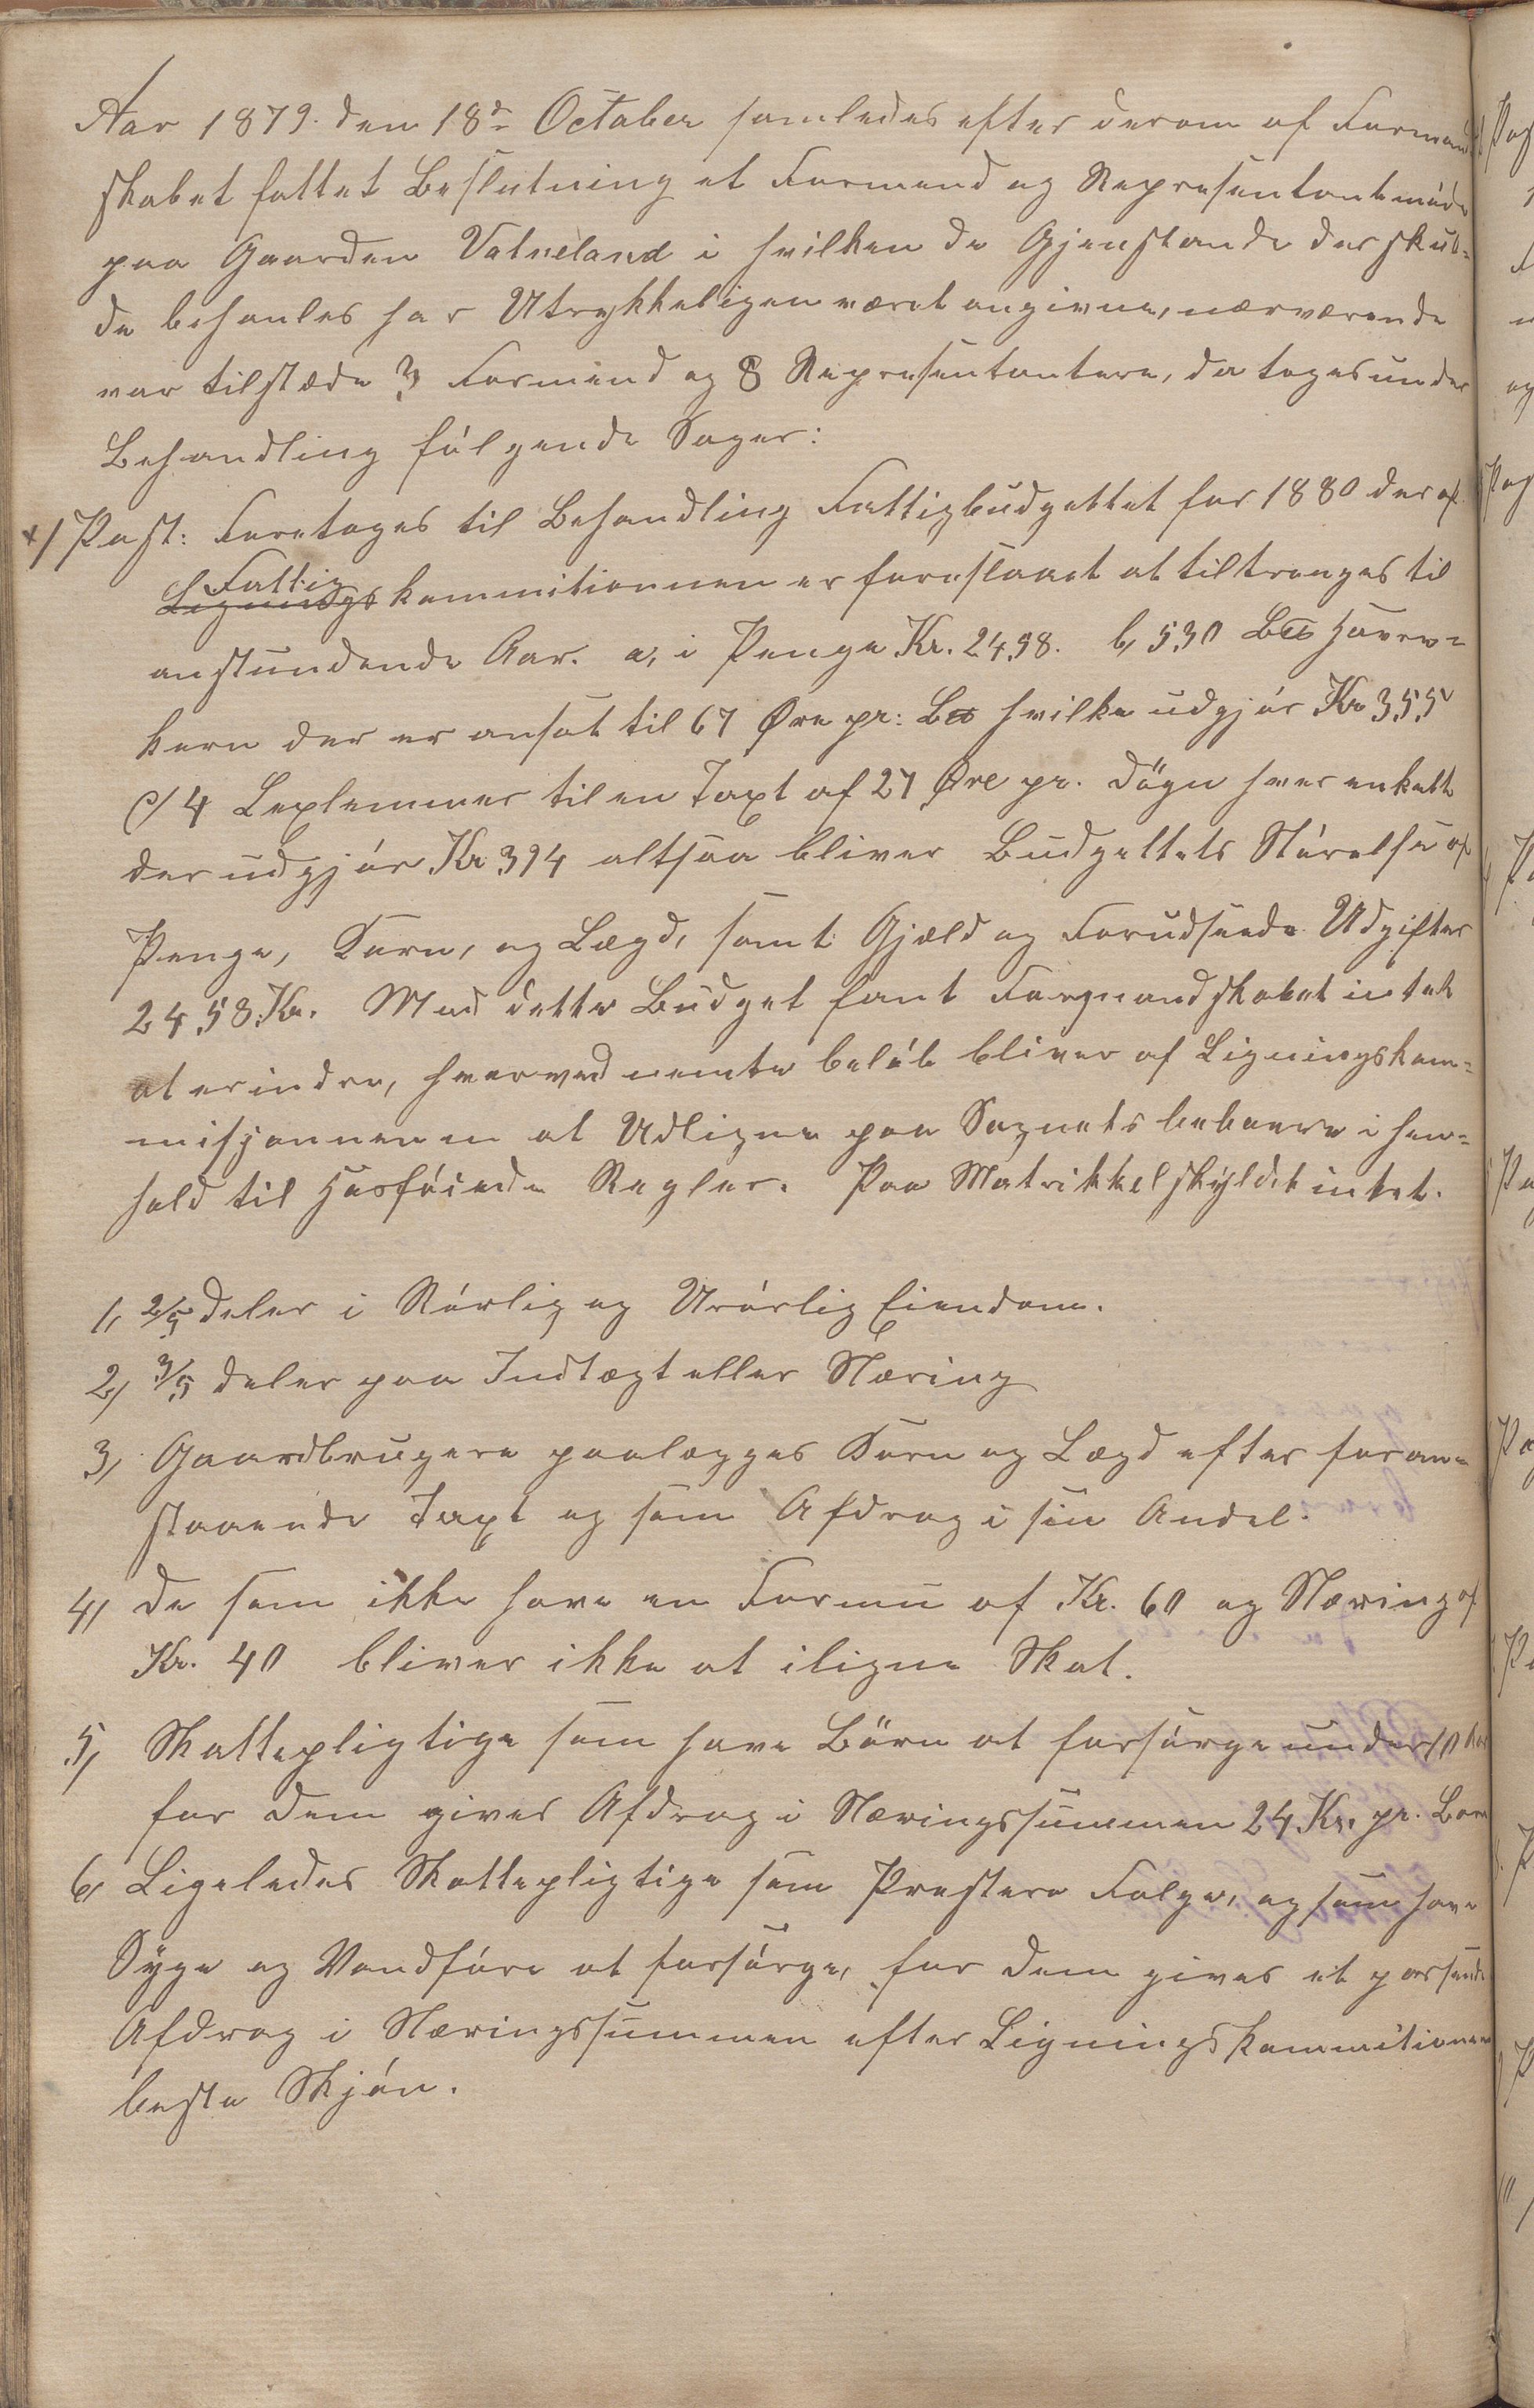 Aar 1879. den 18de October samledes efter derom af Formand
skabet fattet Beslutning et Formend og Representantmöde
paa Gaarden Vatneland i hvilken de Gjenstande der skul=
de behanles har Utrykkeligen været angivne, nærværende
var tilstede 3 Formend og 8 Representantere, da toges under
Behandling fölgende Sager:
1 Post: Foretoges til Behandling Fattigbudgettet for 1880 der af
Fattig
Lignings kommitionnen er foreslaaet at tiltrænges til
anstundende Aar. a, i Penge Kr. 2458. b, 530 Havre=
korn der er ansat til 67 Øre pr: hvilke udgjör Kr 355
c/ 4 Leglemmer til en Taxt af 27 Øre pr. Dögn hver enkelt
der udgjör Kr 394 altsaa bliver Budgettets Störelse af
Penge, Korn, og Lægd, samt Gjæld og Forudseede Udgifter
2458 Kr. Med dette Budget fant Formandskabet intet
at erindre, hvorved nemte belöb bliver af Ligningskom=
misjonnen at Udligne paa Sognets beboere i hen=
hold til Hosföiede Regler. Paa Matrikkelskyldet intet.
1, 2/5 deler i Rörlig og Urörlig Eiendom.
2, 3/5 deler paa Indtægt eller Næring
3, Gaardbrugere paalegges Korn og Lægd efter foran=
staaende Taxt og som Afdrag i sin Andel.
4, De som ikke have en Formu af Kr. 60 og Næring af
Kr. 40 bliver ikke at iligne Skat.
5, Skattepligtige som have Börn at forsörge under 10 Aar
for dem gives Afdrag i Næringssummen 24 Kr. pr. Barn
6, Ligeledes Skattepligtige som Prestere Folge, og som have
Syge og Vandföre at forsörge, for dem gives et passende
Afdrag i Næringssummen efter Ligningskommitionnens
beste Skjön.